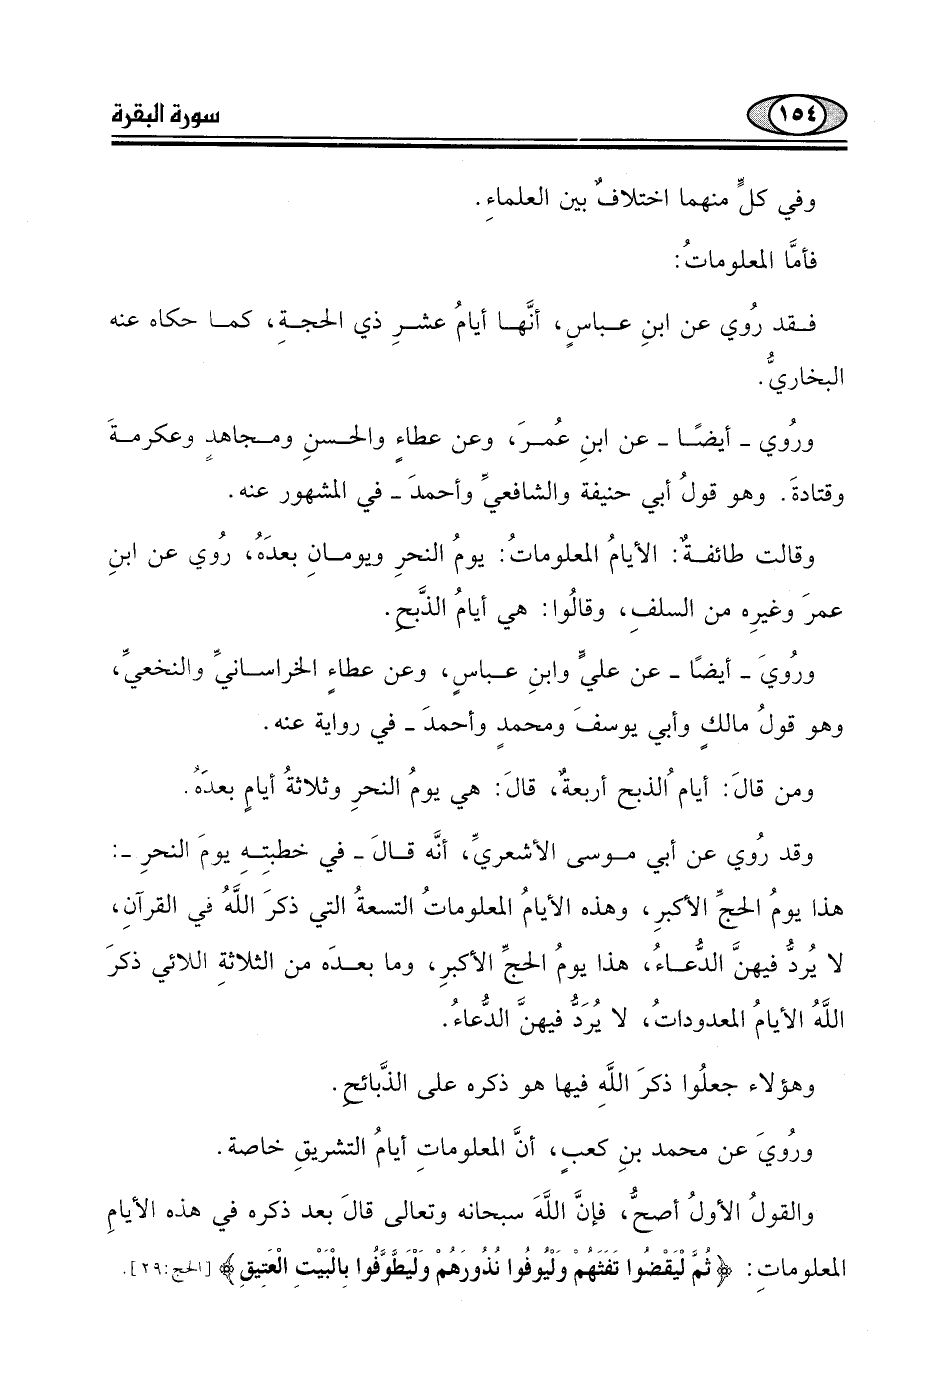 ١٥٤ سورة البقرة
وفي كلٍّ منهما اختلافٌ بين العلماءِ.
فأمَّا المعلوماتُ:
فـقد رُوي عن ابنِ عـباسٍ، أنَّهـا أيامُ عشـرِ ذي الحجـةِ، كمـا حكاه عنه
البخاريُّ.
ورُوي - أيضًـا - عن ابنِ عُمـرَ، وعن عطاءٍ والحـسنِ ومـجاهدٍ وعكرمـةَ
وقتادةَ. وهو قولُ أبي حنيفة والشافعيِّ وأحمدَ - في المشهور عنه.
وقالت طائفـةٌ: الأيامُ المعلوماتُ: يومُ النحرِ ويومـانِ بعدَهُ، رُوي عن ابنِ
عمرَ وغيرِه من السلفِ، وقالُوا: هي أيامُ الذَّبحِ.
ورُويَ - أيضًا - عن عليٍّ وابنِ عـباسٍ، وعن عطاءٍ الخراسـانيِّ والنخعيِّ،
وهو قولُ مالكٍ وأبي يوسفَ ومحمدٍ وأحمدَ - في رواية عنه.
ومن قالَ: أيام الذبح أربعةٌ، قالَ: هي يومُ النحرِ وثلاثةُ أيامٍ بعدَهُ.
وقد رُوي عن أبي مـوسى الأشعريِّ، أنَّه قـالَ - في خطبتِـهِ يومَ النحرِ -:
هذا يومُ الحجِّ الأكبرِ، وهذه الأيامُ المعلوماتُ التسعةُ التي ذكرَ اللَّهُ في القرآنِ،
لا يُردُّ فيهنَّ الدُّعـاءُ، هذا يومُ الحجِّ الأكبرِ، وما بعـدَه من الثلاثةِ اللائي ذكرَ
اللَّهُ الأيامُ المعدوداتُ، لا يُرَدُّ فيهنَّ الدُّعاءُ.
وهؤلاء جعلُوا ذكرَ اللَّهِ فيها هو ذكره على الذَّبائحِ.
ورُويَ عن محمد بنِ كعبٍ، أنَّ المعلوماتِ أيامُ التشريقِ خاصة.
والقولُ الأولُ أصحُّ، فإنَّ اللَّهَ سبحانه وتعالى قالَ بعد ذكره في هذه الأيامِ
المعلوماتِ: ﴿ثُمَّ لْيَقْضُوا تَفَثَهُمْ وَلْيُوفُوا نُذُورَهُمْ وَلْيَطَّوَّفُوا بِالْبَيْتِ الْعَتِيقِ﴾ [الحج:٢٩].